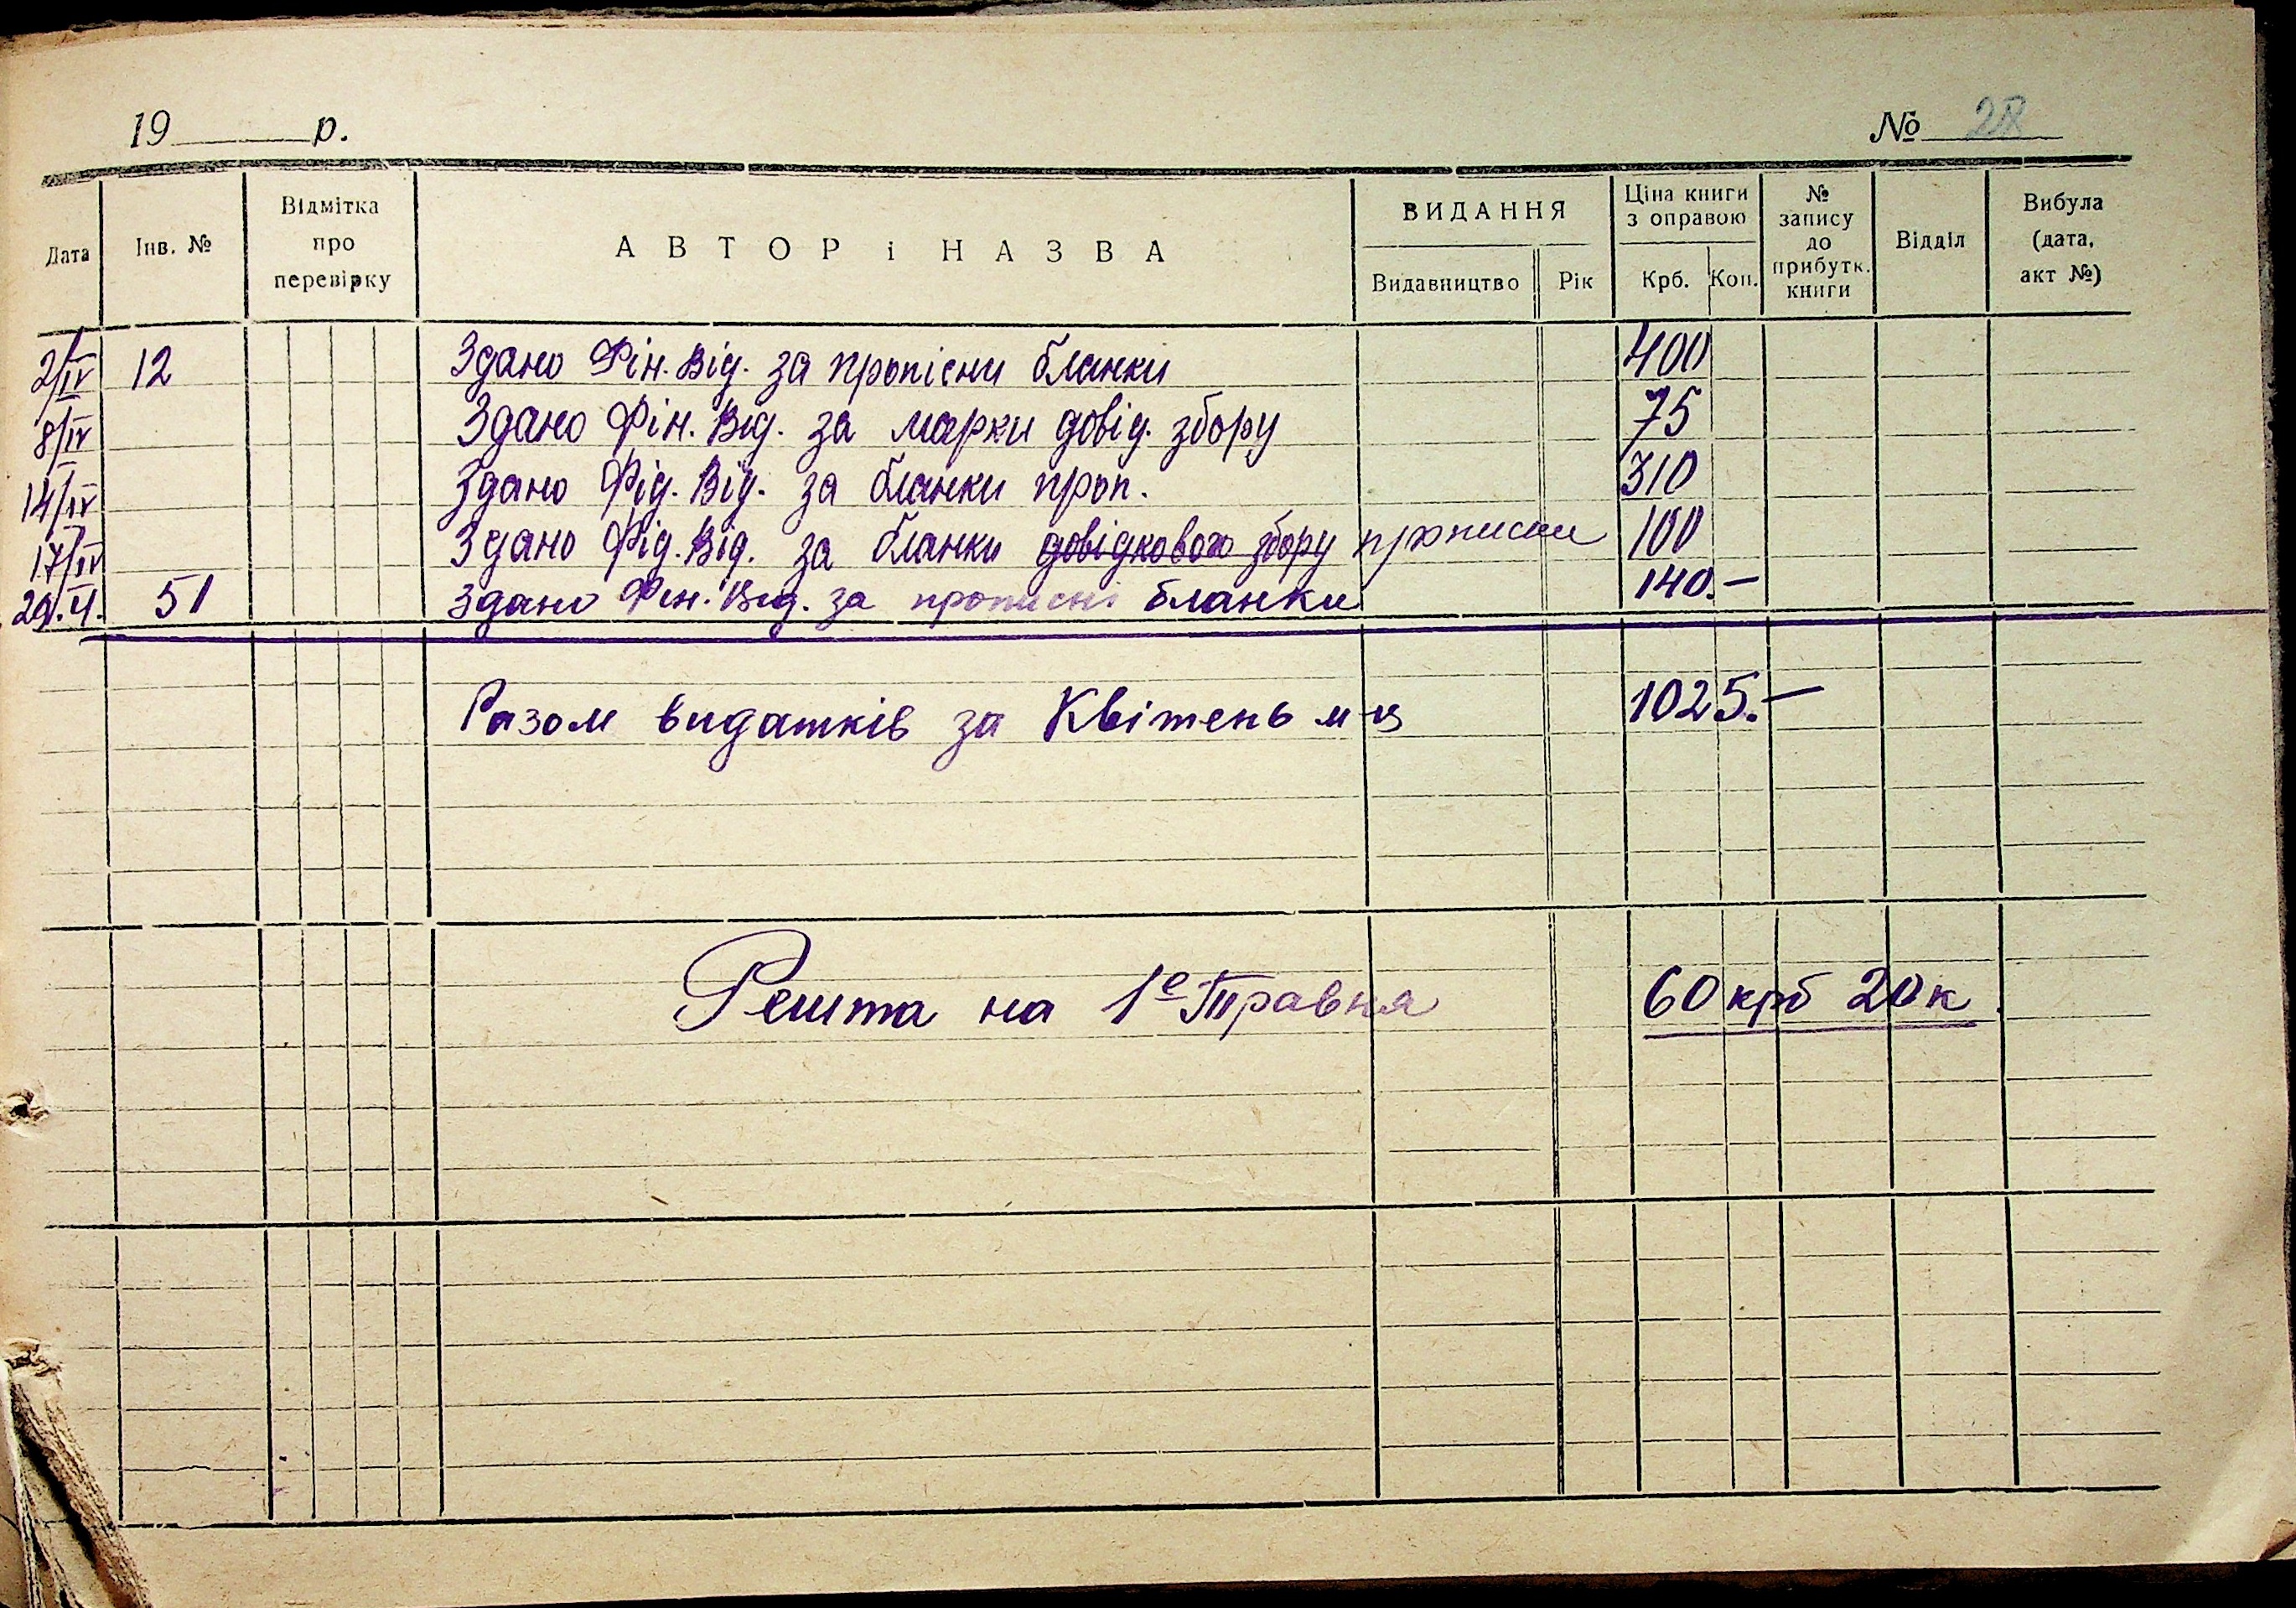 19 р. № 28
Дата Інв. № Відмітка про перевірку АВТОР і НАЗВА ВИДАННЯ Видавництво Рік Ціна книги з оправою Крб. Коп. № запису до прибутк. книги Відділ Вибула (дата, акт №)
2/IV 12 Здано Фін. Від. за прописни бланки 400
8/IV Здано Фін. Від. за марки довід. збору 75
14/IV Здано Фід. Від. за бланки проп. 310
17/IV Здано Фід. Від. за бланки довідкового збору прописки 100
51 Здано Фін. Від. за прописні бланки 140.—
Разом видатків за Квітень м-ц 1025.—
Решта на 1е Травня 60 крб 20 к.